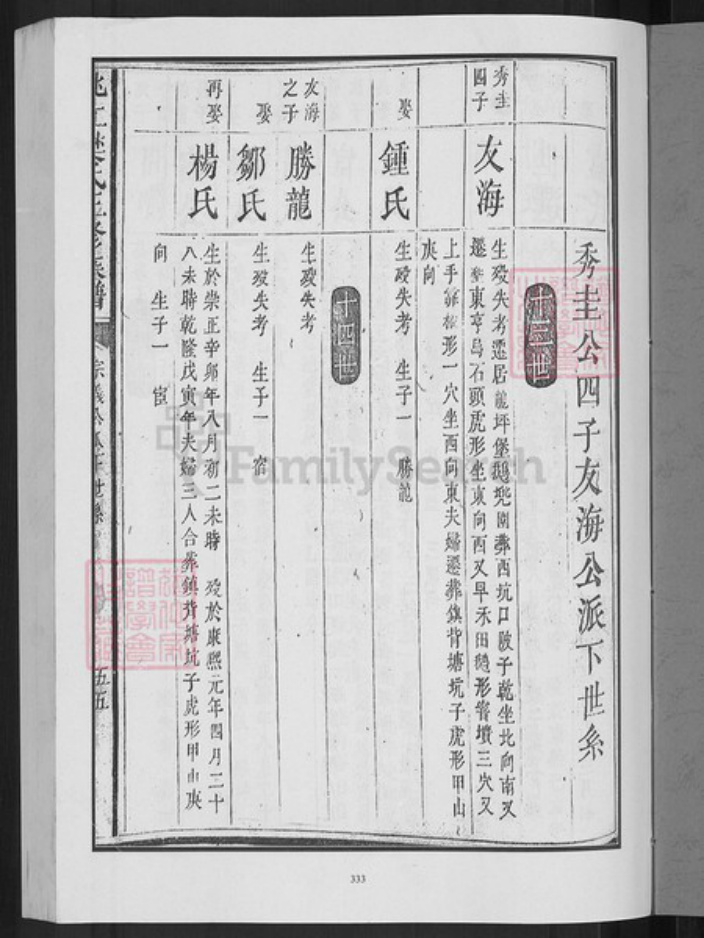 秀圭公四子友海公派下世系
十三世
秀圭四子
友海
生歿失考遷居龍坪堡鵝兠園葬西坑口陂子乾坐北向南又
遷東亨局石頭虎形坐東向西又早禾田形窨墳三穴又
上手形一穴坐西向東夫婦遷葬鎮背塘坑子虎形甲山
庚向
娶
鍾氏
生歿失考 生子一 勝龍
十四世
友海之子
勝龍
生歿失考
娶
鄒氏
生歿失考 生子一 宿
再娶
楊氏
生於崇正辛卯年八月初二未時 歿於康熙元年四月二十
八未時乾隆戊寅年夫婦三人合葬鎮背塘坑子虎形甲山庚
向 生子一 宦
氏五修族譜
宗義公派下世系
五五
FamilySearch
333